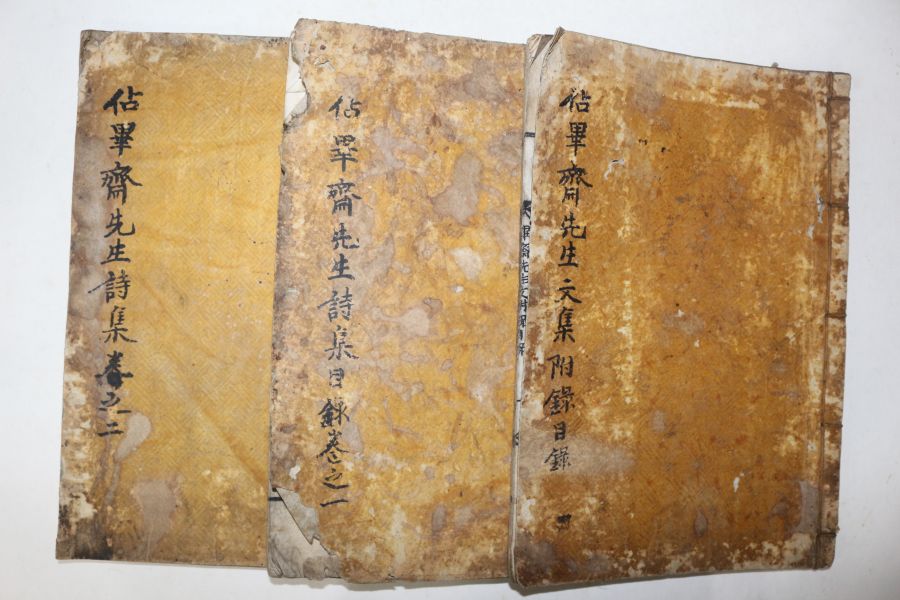 佔畢齋先生文集附錄目錄
佔畢齋先生詩集目錄卷之一
佔畢齋先生詩集卷之二